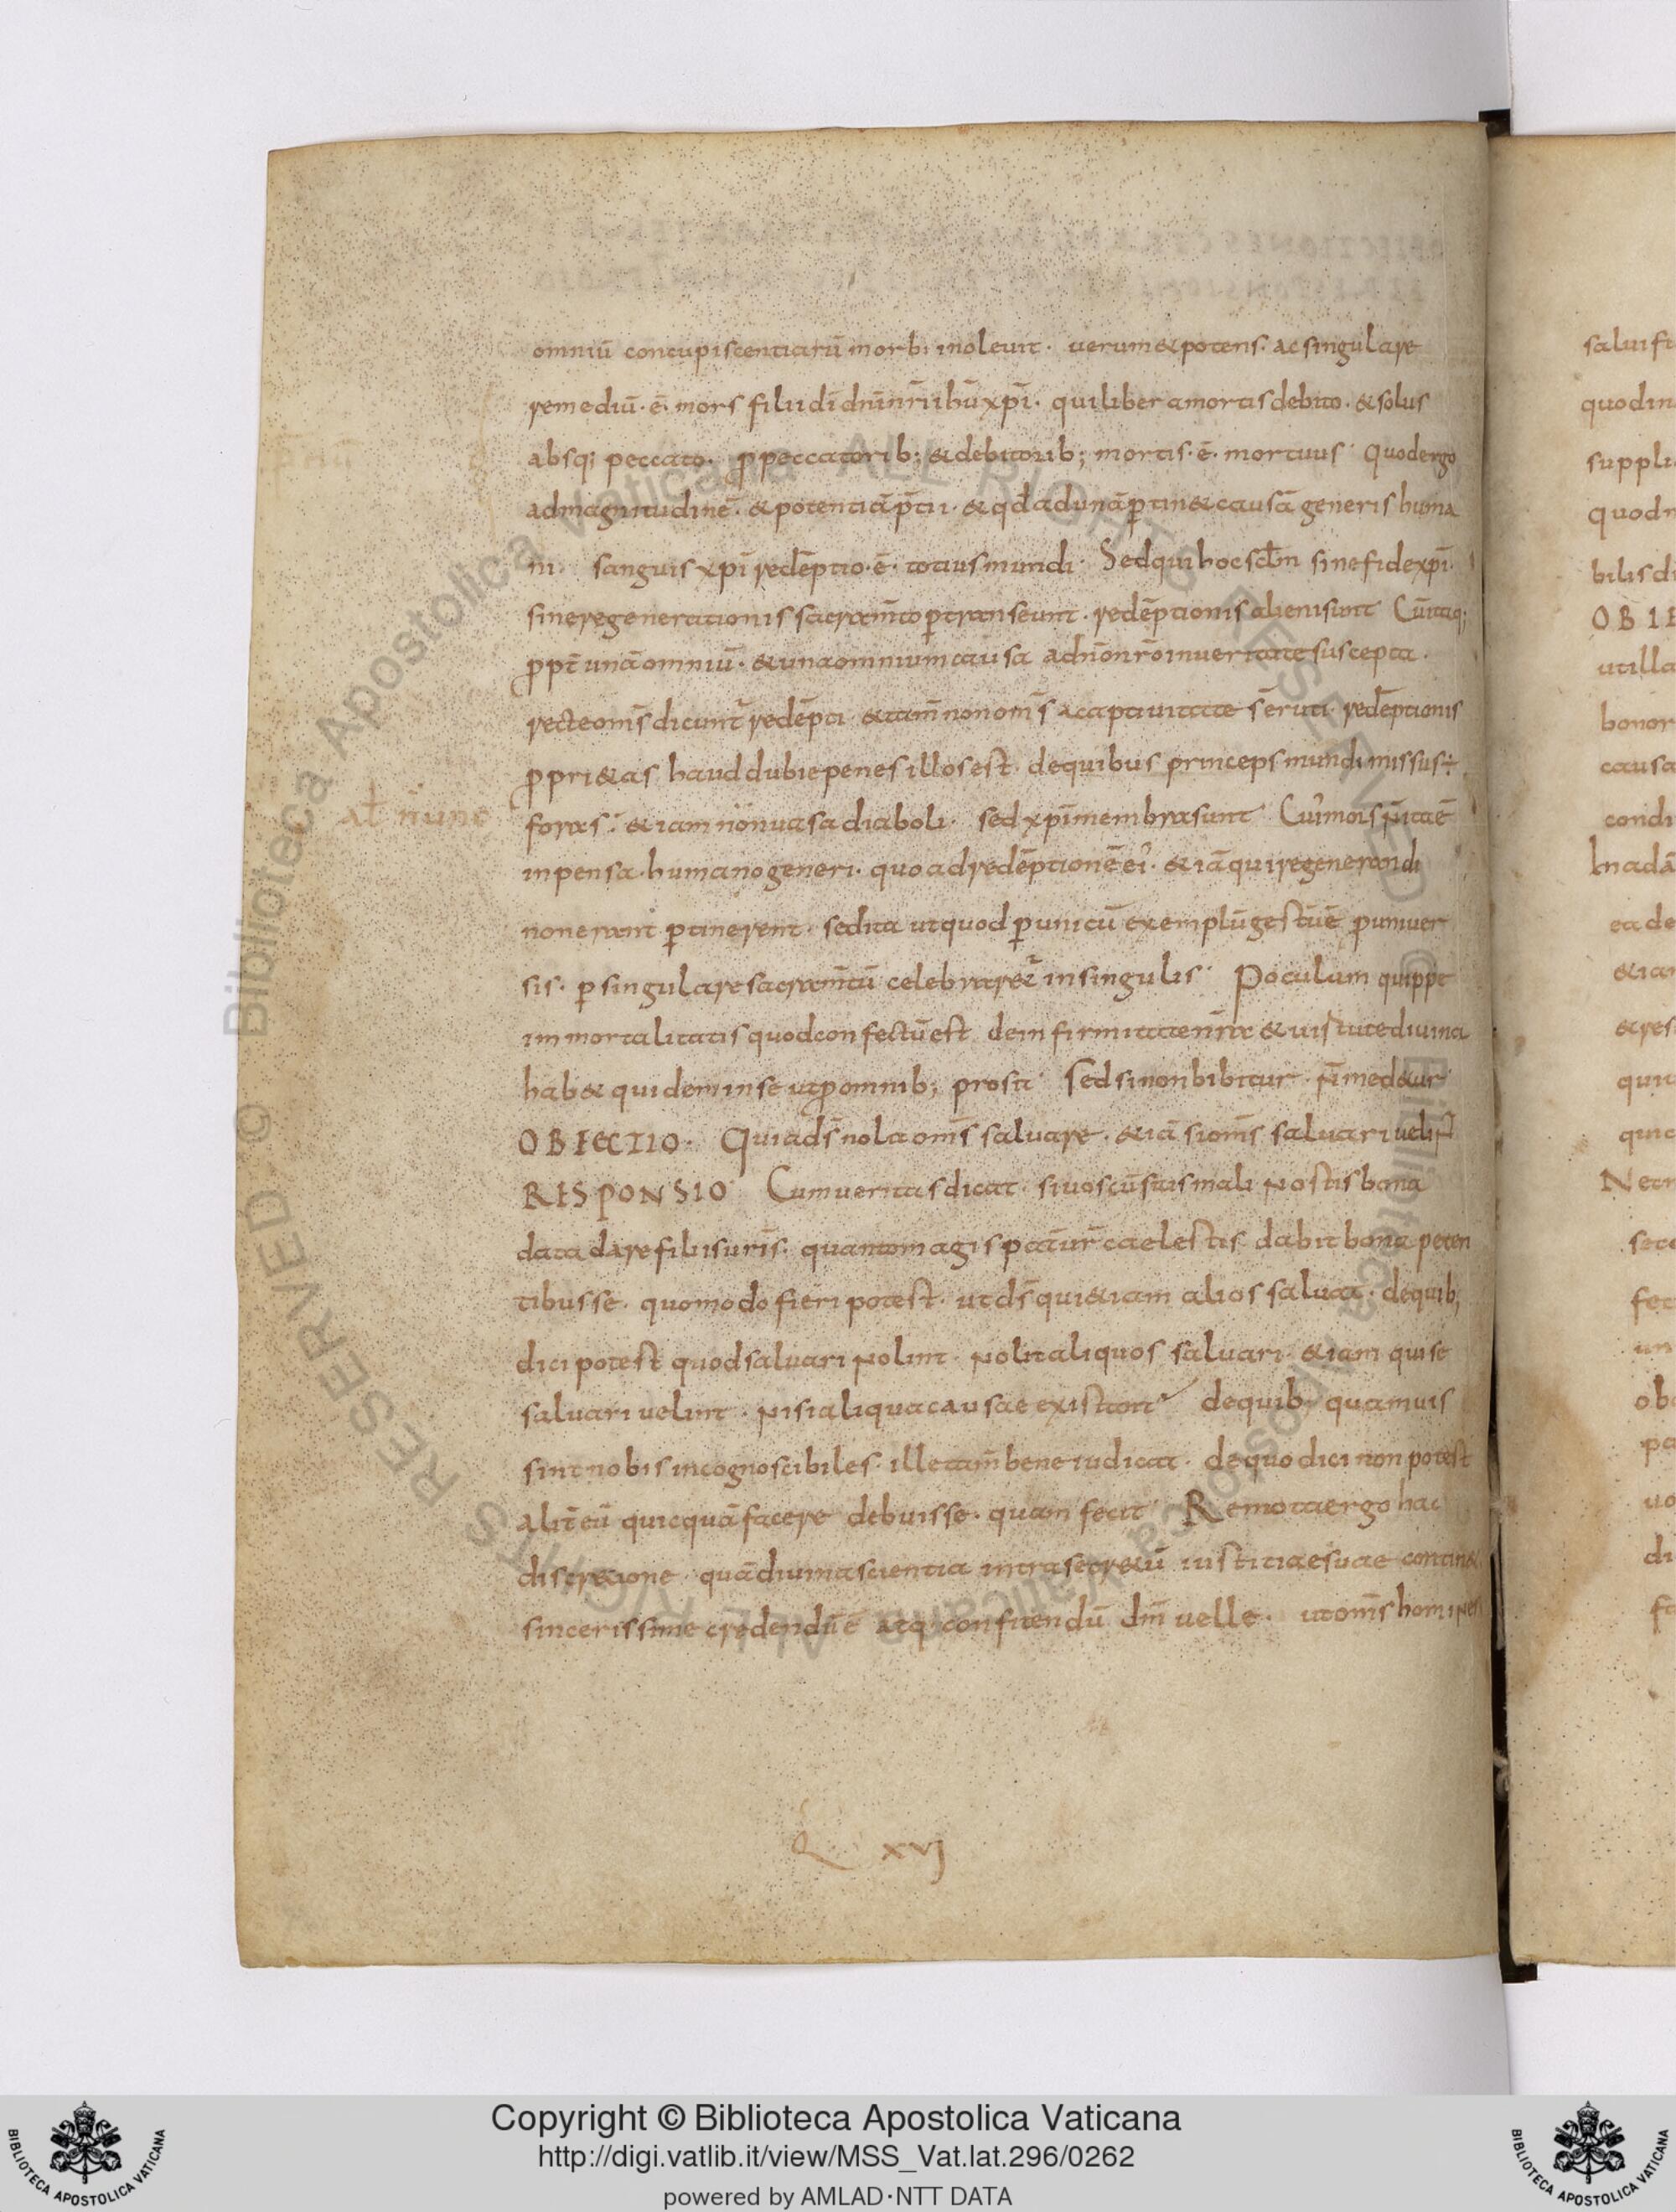 omniū concupiscentiarū morbi inoleuit · uerum & potens · ac singulare
remediū · ē · mors filii dī dnī nrī ihū xpī · qui liber a mortis debito · & solus
absq; peccato · p peccatorib; & debitorib; mortis · ē · mortuus · Quod ergo
ad magnitudinē · & potentiā p̄tii · & qd̄ ad unā ptin& causā generis huma
ni · sanguis xpī redēptio · ē · totius mundi · Sed qui hoc sc̄lm sine fide xpī ·
sine regenerationis sacram̄to ptranseunt · redēptionis alieni sunt · Cū itaq;
ppt̄ unā omniū · & una omnium causa a dn̄o nr̄o in ueritate suscepta ·
recte om̄s dicunt̄ redēpti · & tam̄ non om̄s a captiuitate s̄ eruti · redēptionis
pprietas haud dubie penes illos est · de quibus princeps mundi missus ÷
foras · & iam non uasa diaboli · sed xpī membra sunt · Cui mors n̄ ita ē
al nunc
inpensa · humano generi · quo ad redēptionē ei' · & iā qui regenerandi
non erant ptinerent · sed ita ut quod p unicū exemplū gestū ē p uniuer
sis · p singulare sacram̄tū celebraret̄ in singulis · Poculum quippe
immortalitatis quod confectū est de infirmitate nr̄a & uirtute diuina
hab& quidem in se ut p omnib; prosit · Sed si non bibitur · n̄ med&ur
OBIECTIO · Quia ds̄ nolit om̄s saluare · & iā si om̄s saluari uelint
RESPONSIO · Cum ueritas dicat · si uos cū sitis mali nostis bona
data dare filiis uris · quanto magis pat̄ ur̄ caelestis dabit bona peten
tibus se · quomodo fieri potest · ut ds̄ qui &iam alios saluat · de quib;
dici potest quod saluari nolint · nolit aliquos saluari · &iam qui se
saluari uelint · nisi aliqua causae existant de quib; quamuis
sint nobis incognoscibiles · ille tam̄ bene iudicat · de quo dici non potest
alit̄ eū quicquā facere debuisse · quam fecit · Remota ergo hac
discr&ione · quā diuina scientia intra secr&ū iustitiae suae contin&
sincerissime credendū ē atq; confitendū dm̄ uelle · ut om̄s homines
Q xvj
Copyright © Biblioteca Apostolica Vaticana
http://digi.vatlib.it/view/MSS_Vat.lat.296/0262
powered by AMLAD·NTT DATA
BIBLIOTECA APOSTOLICA VATICANA
BIBLIOTECA APOSTOLICA VATICANA